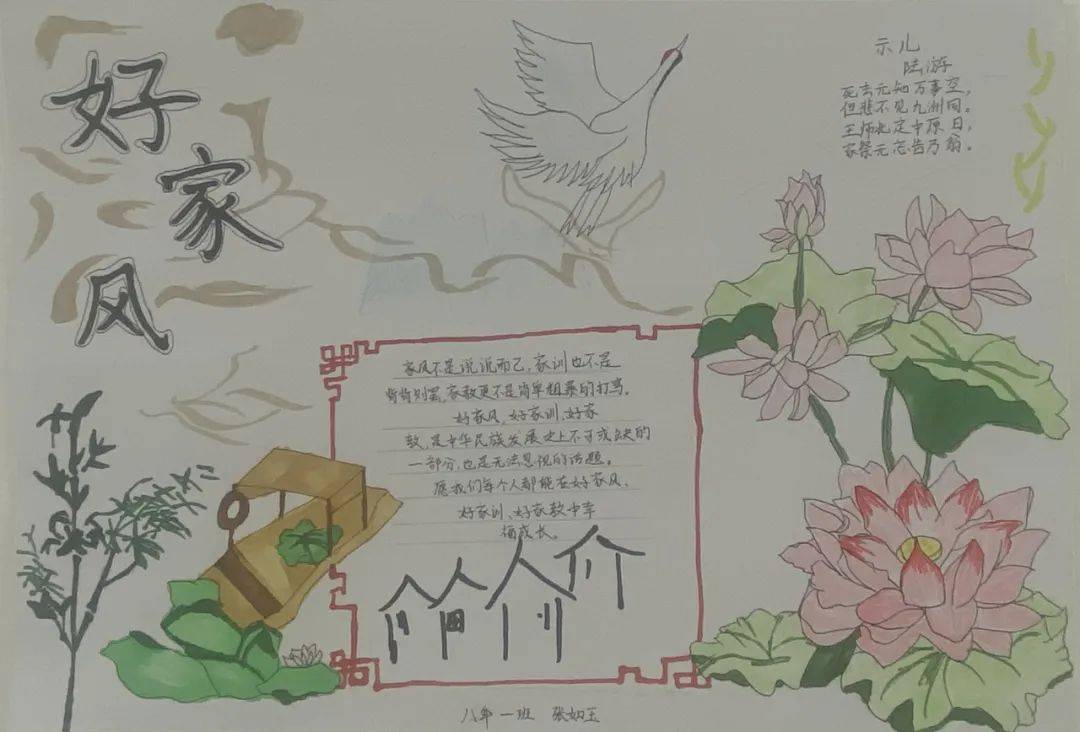 好
家
风
示儿
陆游
死去元知万事空,
但悲不见九洲同。
王师北定中原日,
家祭无忘告乃翁。
家风不是说说而已,家训也不是
背背则罢,家教更不是简单粗暴的打骂。
好家风,好家训、好家
教,是中华民族发展史上不可或缺的
一部分,也是无法忽视的话题。
愿我们每个人都能在好家风、
好家训、好家教中幸
福成长。
八年一班 张如玉